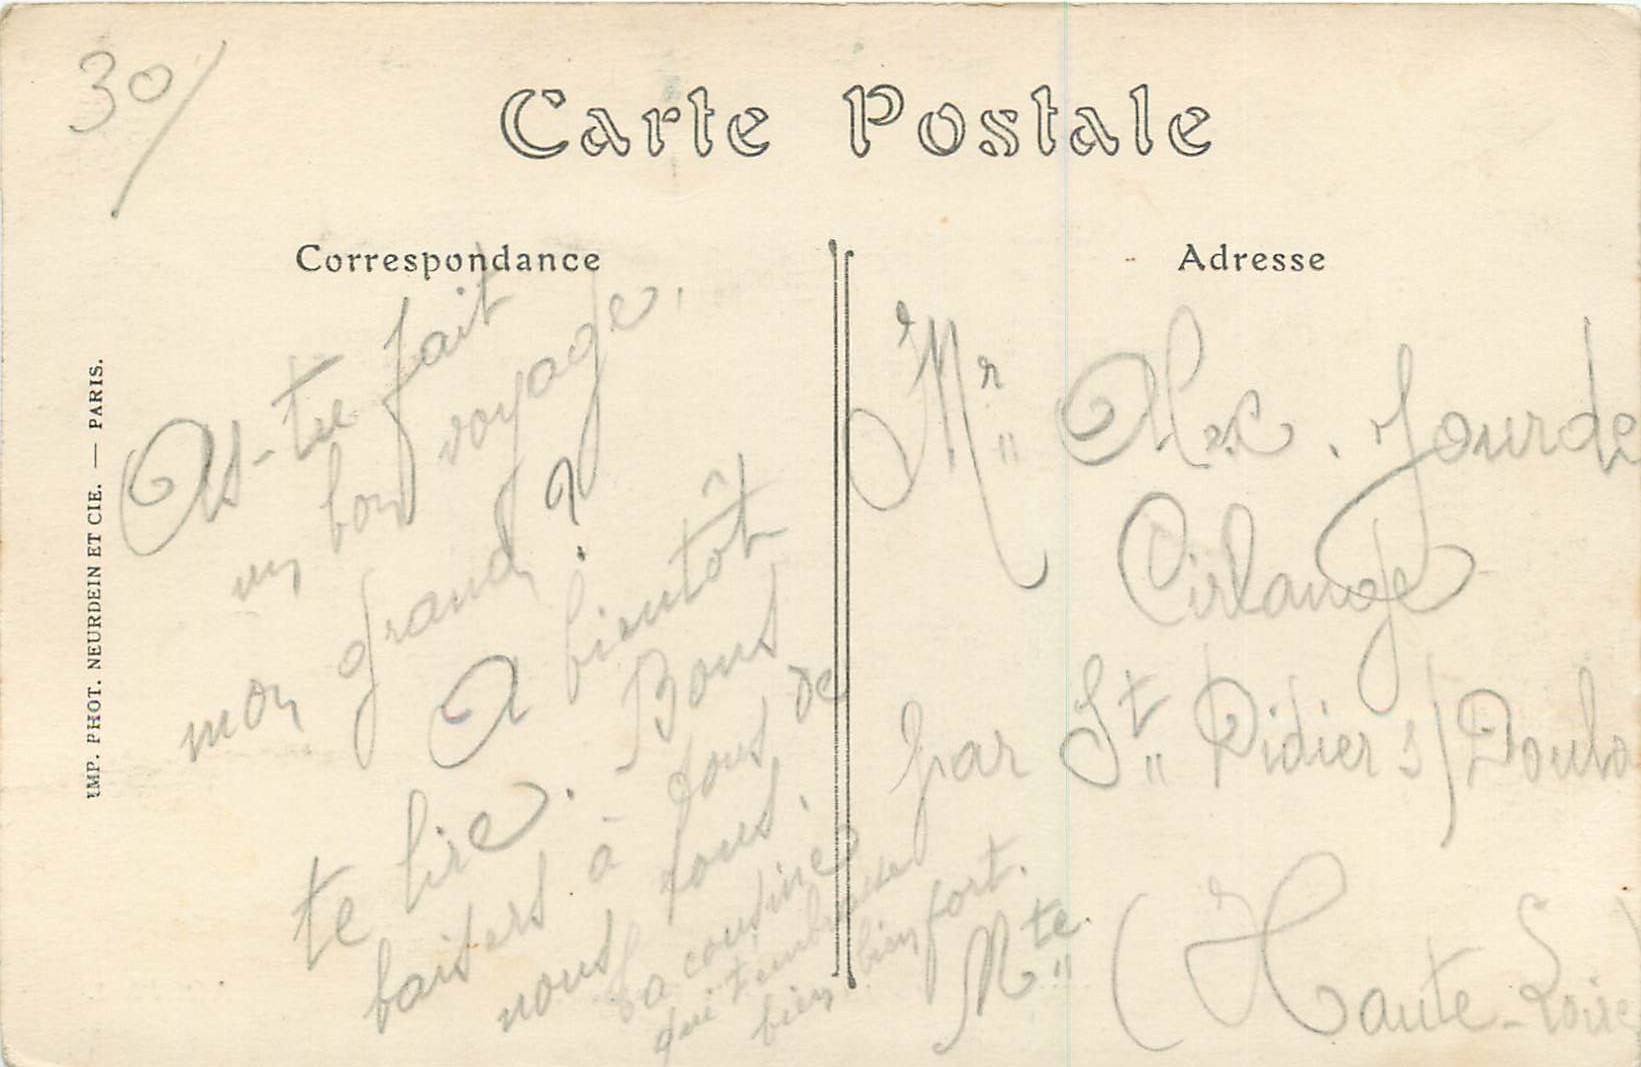 30/
Carte Postale
Correspondance
Adresse
IMP. PHOT. NEURDEIN ET CIE. — PARIS.
As-tu fait
un bon voyage,
mon grand?
A bientôt
te lire. - Bons
baisers à tous de
nous tous.
Ta cousine
qui t'embrasse
bien bien fort.
Mte
Mr Alex. Jourde
Cirlange
par St Didier s/ Doulo
(Haute-Loire)